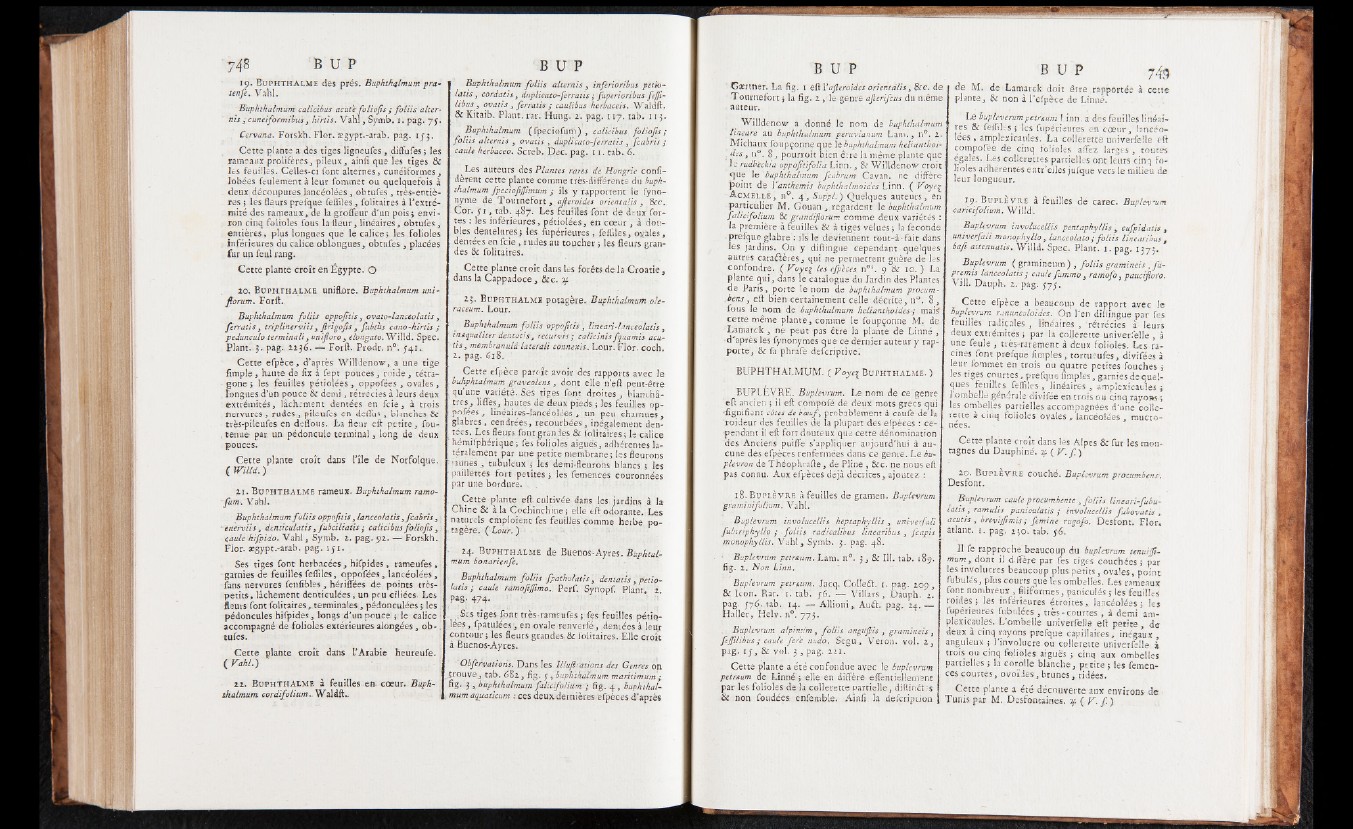 748 B U P
19. BUPHTHALME des prés. Buphthalmum pra-
tense. Vahl.
Buphthalmum calicibus acutè foliosis ; foliis alter-
nis, cuneiformibus, hirtis. Vahl, Symb. 1. pag. 75.
Cervana. Forskh. Flor. ægypt.-arab. pag. 153.
Cette plante a des tiges ligneuses, diffuses ; les
rameaux prolifères, pileux, ainsi que les tiges &
les feuilles. Celles-ci sont alternes, cunéiformes,
lobées seulement à leur sommet ou quelquefois à
deux découpures lancéolées, obtuses, très-entiè-
res ; les fleurs presque sessiles, solitaires à l'extré-
mité des rameaux, de la grosseur d'un pois ; envi-
ron cinq folioles sous la fleur, linéaires, obtuses,
entières, plus longues que le calice ; les folioles
inférieures du calice oblongues, obtuses, placées
sur un seul rang.
Cette plante croît en Égypte. O
20. BUPHTHALME uniflore. Buphthalmum uni-
florum. Forst.
Buphthalmum foliis oppositis, ovato-lanceolatis,
serratis, triplinerviis, strigosis, subtùs cano-hirtis ;
pedunculo terminali, unifloro, elongato. Willd. Spec.
Plant. 3. pag. 2236. — Forst. Prodr. n°. 541.
Cette espèce, d'après Willdenow, a une tige
simple, haute de six à sept pouces, roide, tétra-
gone ; les feuilles pétiolées, opposées, ovales,
longues d'un pouce & demi, rétrécies à leurs deux
extrémités, lâchement dentées en scie, à trois
nervures ; rudes, pileuses en dessus, blanches &
très-pileuses en dessous. La fleur est petite, sou-
tenue par un pédoncule terminal, long de deux
pouces.
Cette plante croît dans l'île de Norfolque.
( Willd. )
21. BUPHTHALME rameux. Buphthalmum ramo-
sum. Vahl.
Buphthalmum foliis oppositis, lanceolatis, scabris,
enerviis, denticulatis, subciliatis ; calicibus foliosis,
caule hispido. Vahl, Symb. 2. pag. 92. — Forskh.
Flor. ægypt.-arab. pag. 151.
Ses tiges sont herbacées, hispides, rameuses,
garnies de feuilles sessiles, opposées, lancéolées,
sans nervures sensibles, hérissées de points très-
petits, lâchement denticulées, un peu ciliées. Les
fleurs sont solitaires, terminales, pédonculées ; les
pédoncules hispides, longs d'un pouce ; le calice
accompagné de folioles extérieures alongées, ob-
tuses.
Cette plante croît dans l'Arabie heureuse.
( Vahl. )
22. BUPHTHALME à feuilles en cœur. Buph-
thalmum cordifolium. Waldst.
B U P
Buphthalmum foliis alternis, inferioribus petio-
latis, cordatis, duplicato-serratis ; superioribus sessi-
libus, ovatis, serratis ; caulibus herbaceis. Waldst.
& Kitaib. Plant. rar. Hung. 2. pag. 117. tab. 113.
Buphthalmum (speciosum), calicibus foliosis ;
foliis alternis, ovatis, duplicato-serratis, scabris ;
caule herbaceo. Screb. Dec. pag. 11. tab. 6.
Les auteurs des Plantes rares de Hongrie consi-
dèrent cette plante comme très-différente du buph-
thalmum speciosissimum ; ils y rapportent le syno-
nyme de Tournefort, asteroides orientalis, &c.
Cor. 51, tab. 487. Les feuilles sont de deux sor-
tes : les inférieures, pétiolées, en cœur, à dou-
bles dentelures ; les supérieures, sessiles, ovales,
dentées en scie, rudes au toucher ; les fleurs gran-
des & solitaires.
Cette plante croît dans les forêts de la Croatie,
dans la Cappadoce, &c. ♃
23. BUPHTHALME potagère. Buphthalmum ole-
raceum. Lour.
Buphthalmum foliis oppositis, lineari-lanceolatis,
inequaliter dentatis, recurvis ; calicinis squamis acu-
tis, membranulâ laterali connexis. Lour. Flor. coch.
2. pag. 618.
Cette espèce paroît avoir des rapports avec le
buhphtalmum graveolens, dont elle n'est peut-être
qu'une variété. Ses tiges sont droites, blanchâ-
tres, lisses, hautes de deux pieds ; les feuilles op-
posées, linéaires-lancéolées, un peu charnues,
glabres, cendrées, recourbées, inégalement den-
tées. Les fleurs sont grandes & solitaires ; le calice
hémisphérique ; ses folioles aiguës, adhérentes la-
téralement par une petite membrane ; les fleurons
jaunes, tubuleux ; les demi-fleurons blancs ; les
paillettes fort petites ; les semences couronnées
par une bordure.
Cette plante est cultivée dans les jardins à la
Chine & à la Cochinchine ; elle est odorante. Les
naturels emploient ses feuilles comme herbe po-
tagère. ( Lour. )
24. BUPHTHALME de Buenos-Ayres. Buphtal-
mum bonariense.
Buphthalmum foliis spatholatis, dentatis, petio-
latis ; caule ramosissimo. Pers. Synops. Plant. 2.
pag. 474.
Ses tiges sont très-rameuses ; ses feuilles pétio-
lées, spatulées, en ovale renversé, dentées à leur
contour ; les fleurs grandes & solitaires. Elle croît
à Buenos-Ayres.
Observations. Dans les Illustrations des Genres on
trouve, tab. 682, fig. 5, buphthalmum maritimum ;
fig. 3, buphthalmum salicifolium ; fig. 4, buphthal-
mum aquaticum : ces deux dernières espèces d'après
B U P
Gærtner. La fig. 1 est l'asteroides orientalis, &c. de
Tournefort ; la fig. 2, le genre asteriscus du même
auteur.
Willdenow a donné le nom de buphthalmum
lineare au buphthalmum peruvianum Lam., n°. 2.
Michaux soupçonne que le buphthalmum helianthoi-
des, n°. 8, pourroit bien être la même plante que
le rudbeckia oppositifolia Linn., & Willdenow croit
que le buphthalmum scabrum Cavan. ne diffère
point de l'anthemis buphthalmoides Linn. ( Voyez
ACMELLE, n°. 4, Suppl. ) Quelques auteurs, en
particulier M. Gouan, regardent le buphthalmum
salicifolium & grandiflorum comme deux variétés :
la première à feuilles & à tiges velues ; la seconde
presque glabre : ils le deviennent tout-à-fait dans
les jardins. On y distingue cependant quelques
autres caractères, qui ne permettent guère de les
confondre. ( Voyez les espèces nos. 9 & 10. ) La
plante qui, dans le catalogue du Jardin des Plantes
de Paris, porte le nom de buphthalmum procum-
bens, est bien certainement celle décrite, n°. 8,
sous le nom de buphthalmum helianthoides ; mais
cette même plante, comme le soupçonne M. de
Lamarck, ne peut pas être la plante de Linné,
d'après les synonymes que ce dernier auteur y rap-
porte, & sa phrase descriptive.
BUPHTHALMUM. ( Voyez BUPHTHALME. )
BUPLÈVRE. Buplevrum. Le nom de ce genre
est ancien ; il est composé de deux mots grecs qui
signifient côtes de bœuf, probablement à cause de la
roideur des feuilles de la plupart des espèces : ce-
pendant il est fort douteux que cette dénomination
des Anciens puisse s'appliquer aujourd'hui à au-
cune des espèces renfermées dans ce genre. Le bu-
plevron de Théophraste, de Pline, &c. ne nous est
pas connu. Aux espèces déjà décrites, ajoutez :
18. BUPLÈVRE à feuilles de gramen. Buplevrum
graminifolium. Vahl.
Buplevrum involucellis heptaphyllis, universali
subtriphyllo ; foliis radicalibus linearibus, scapis
monophyllis. Vahl, Symb. 3. pag. 48.
Buplevrum petræum. Lam. n°. 3, & Ill. tab. 189.
fig. 2. Non Linn.
Buplevrum petræum. Jacq. Collect. 1. pag. 209,
& Icon. Rar. 1. tab. 56. — Villars, Dauph. 2.
pag. 576. tab. 14. — Allioni, Auct. pag. 24. —
Haller, Helv. n°. 773.
Buplevrum alpinum, foliis angustis, gramineis,
sessilibus ; caule ferè nudo. Segu. Veron. vol. 2,
pag. 15, & vol. 3, pag. 221.
Cette plante a été confondue avec le buplevrum
petræum de Linné ; elle en diffère essentiellement
par les folioles de la collerette partielle, distinctes
& non soudées ensemble. Ainsi la description
B U P 749
de M. de Lamarck doit être rapportée à cette
plante, & non à l'espèce de Linné.
Le buplevrum petræum Linn. a des feuilles linéai-
res & sessiles ; les supérieures en cœur, lancéo-
lées, amplexicaules. La collerette universelle est
composée de cinq folioles assez larges, toutes
égales. Les collerettes partielles ont leurs cinq fo-
lioles adhérentes entr'elles jusque vers le milieu de
leur longueur.
19. BUPLÈVRE à feuilles de carec. Buplevrum
caricifolium. Willd.
Buplevrum involucellis pentaphyllis, cuspidatis,
universali monophyllo, lanceolato ; foliis linearibus,
basi attenuatis. Willd. Spec. Plant. 1. pag. 1373.
Buplevrum ( gramineum ), foliis gramineis, su-
premis lanceolatis ; caule summo, ramoso, paucifloro.
Vill. Dauph. 2. pag. 575.
Cette espèce a beaucoup de rapport avec le
buplevrum ranunculoides. On l'en distingue par ses
feuilles radicales, linéaires, rétrécies à leurs
deux extrémites ; par la collerette universelle, à
une seule, très-rarement à deux folioles. Les ra-
cines sont presque simples, tortueuses, divisées à
leur sommet en trois ou quatre petites souches ;
les tiges courtes, presque simples, garnies de quel-
ques feuilles sessiles, linéaires, amplexicaules ;
l'ombelle générale divisée en trois ou cinq rayons ;
les ombelles partielles accompagnées d'une colle-
rette à cinq folioles ovales, lancéolées, mucro-
nées.
Cette plante croît dans les Alpes & sur les mon-
tagnes du Dauphiné. ♃ ( V. s. )
20. BUPLÈVRE couché. Buplevrum procumbens.
Desfont.
Buplevrum caule procumbente, foliis lineari-subu-
latis, ramulis paniculatis ; involucellis subovatis,
acutis, brevissimis ; semine rugoso. Desfont. Flor.
atlant. 1. pag. 230. tab. 56.
Il se rapproche beaucoup du buplevrum tenuissi-
mum, dont il diffère par ses tiges couchées ; par
les involucres beaucoup plus petits, ovales, point
subulés, plus courts que les ombelles. Les rameaux
sont nombreux, filiformes, paniculés ; les feuilles
roides ; les inférieures étroites, lancéolées ; les
supérieures subulées, très-courtes, à demi am-
plexicaules. L'ombelle universelle est petite, de
deux à cinq rayons presque capillaires, inégaux,
anguleux ; l'involucre ou collerette universelle à
trois ou cinq folioles aiguës ; cinq aux ombelles
partielles ; la corolle blanche, petite ; les semen-
ces courtes, ovoïdes, brunes, ridées.
Cette plante a été découverte aux environs de
Tunis par M. Desfontaines. ♃ ( V. s. )